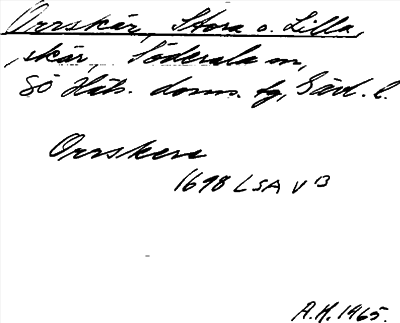 Orrskär, Stora o. Lilla,
, skär, Söderala sn,
Sö Häls. doms. tg, Gävl. l.
Orrskere
1698 LSA V B
A.H. 1965.